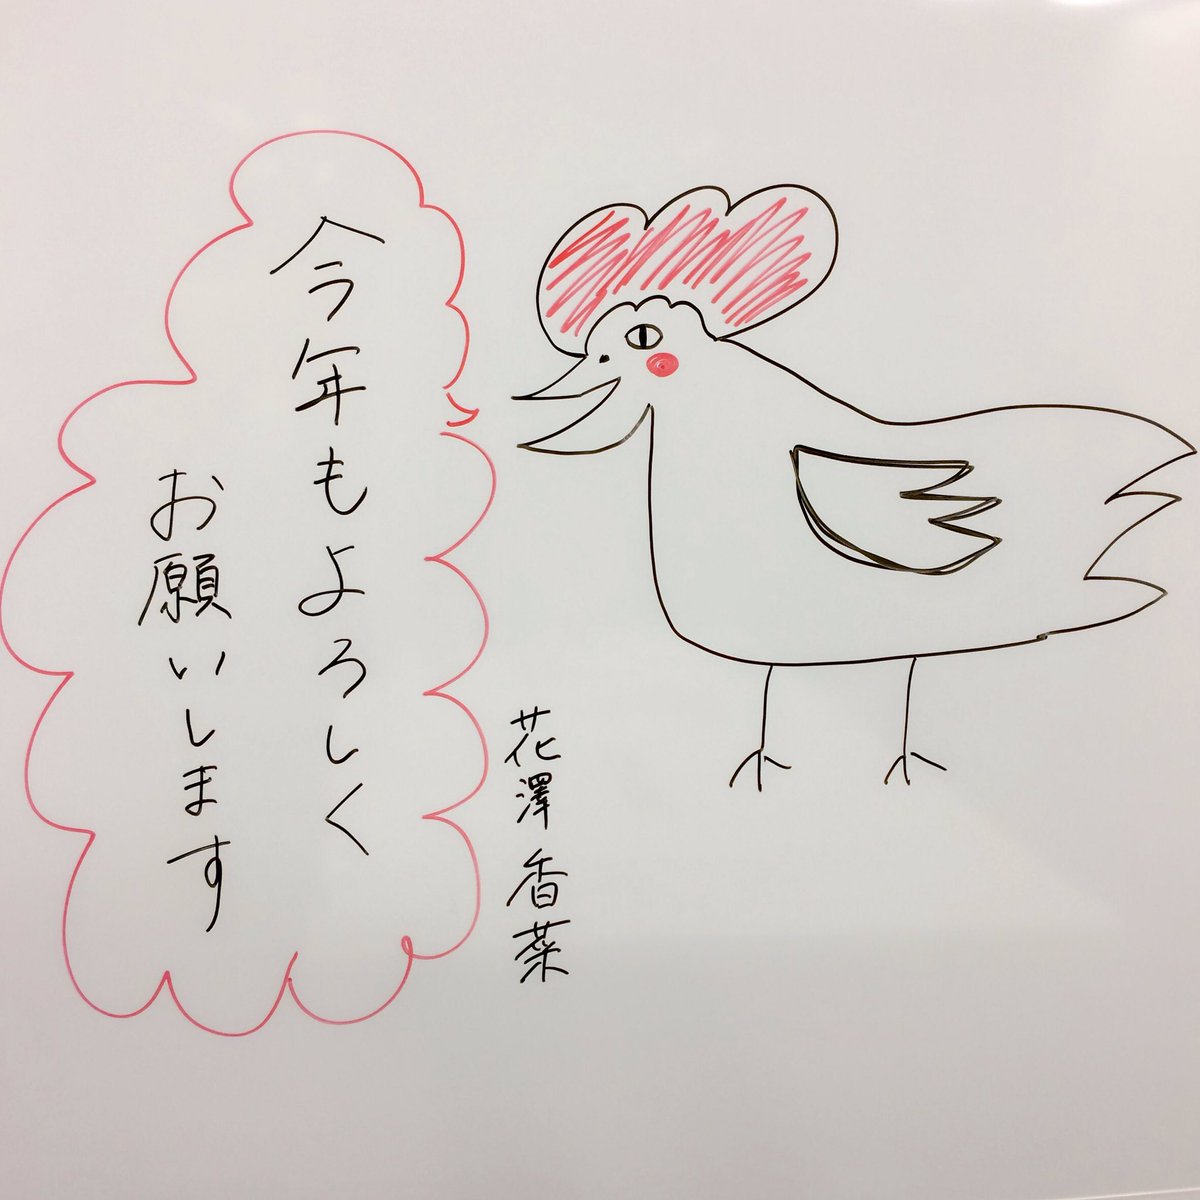 今年もよろしく
お願いします
花澤香菜